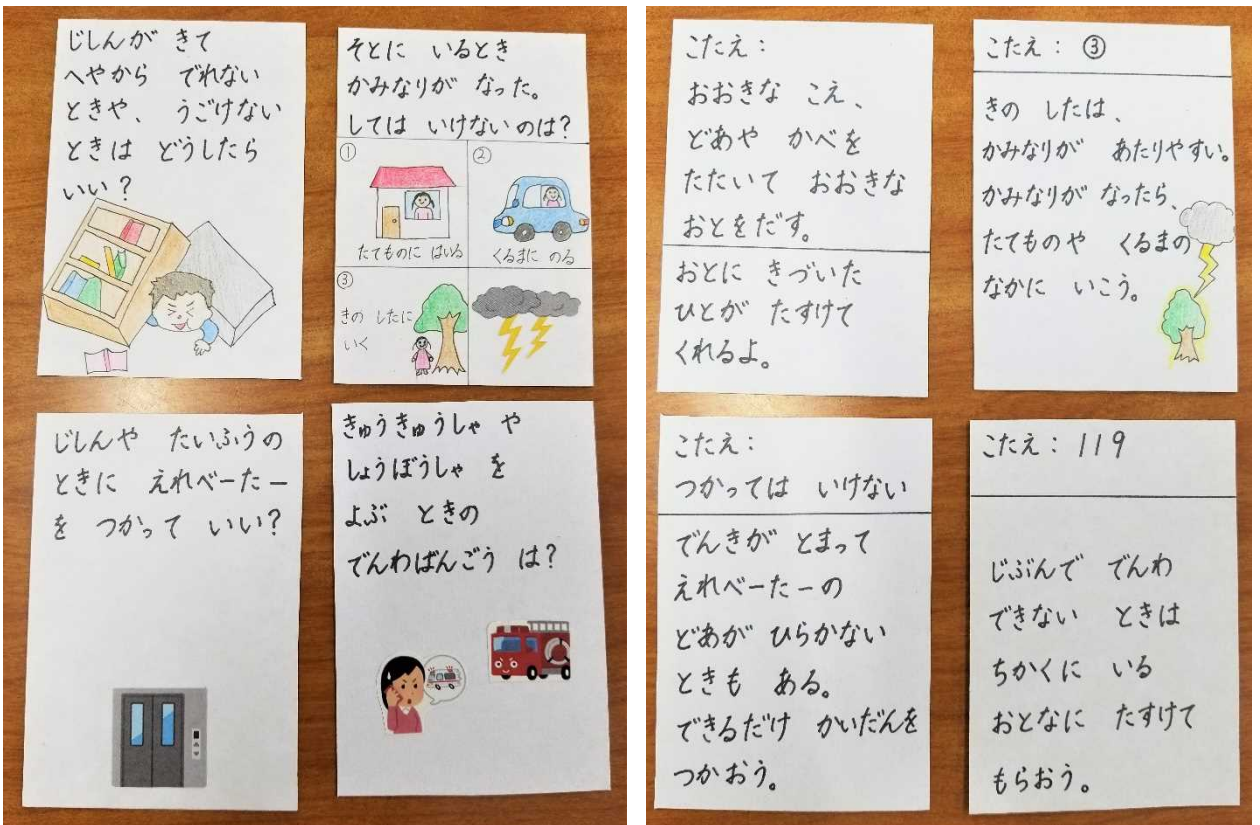 じしんが きて
へやから でれない
ときや、 うごけない
ときは どうしたら
いい?
そとに いるとき
かみなりが なった。
しては いけないのは?
①
たてものに はいる
②
くるまに のる
③
きの したに
いく
じしんや たいふうの
ときに えれべーたー
を つかって いい?
きゅうきゅうしゃ や
しょうぼうしゃ を
よぶ ときの
でんわばんごう は?
こたえ:
おおきな こえ、
どあや かべを
たたいて おおきな
おとをだす。
おとに きづいた
ひとが たすけて
くれるよ。
こたえ: ③
きの したは、
かみなりが あたりやすい。
かみなりが なったら、
たてものや くるまの
なかに いこう。
こたえ:
つかっては いけない
でんきが とまって
えれべーたーの
どあが ひらかない
ときも ある。
できるだけ かいだんを
つかおう。
こたえ: 119
じぶんで でんわ
できない ときは
ちかくに いる
おとなに たすけて
もらおう。